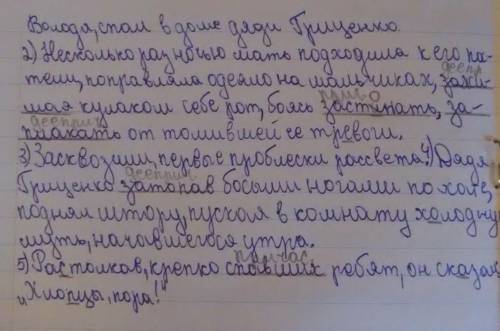 Володя, спал в доме дяди Гриценко.
2) Несколько раз ночью мать подходила к его по-
дееприч
тели, поправляла одеяло на мальчиках, зажи-
мая кулаком себе рот, боясь застонать, за-
дееприч
плакать от томившей её тревоги.
3) Засквозили, первые проблески рассвета. 4) Дядя
дееприч
Гриценко затопав босыми ногами по хате,
поднял штору, пуская в комнату холодную
муть, начавшегося утра.
причас
5) Растолкав, крепко спавших ребят, он сказал:
„Хлопцы, пора!"